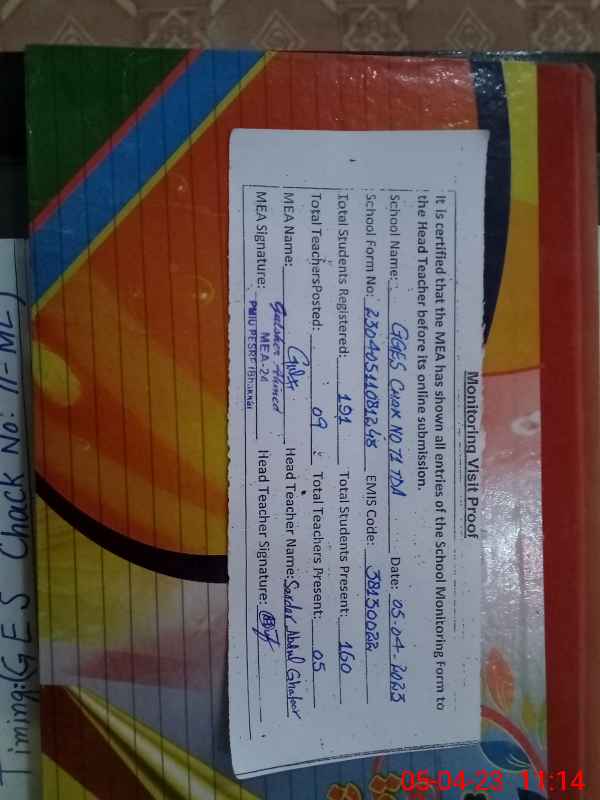 Monitoring Visit Proof
It is certified that the MEA has shown all entries of the School Monitoring Form to
the Head Teacher before its online submission.
School Name: GGES Chak No 71 TDA Date: 05-04-2023
School Form No: 23040511081248 EMIS Code: 38130022
Total Students Registered: 191 Total Students Present: 160
Total TeachersPosted: 09 Total Teachers Present: 05
MEA Name: Head Teacher Name: Sardar Abdul Ghafoor
MEA Signature: Gulsher Ahmed Head Teacher Signature:
MEA-24
PMIU PESRP (Bhakkar)
Timing:(GES Chack No: 11-ML)
05-04-23 11:14